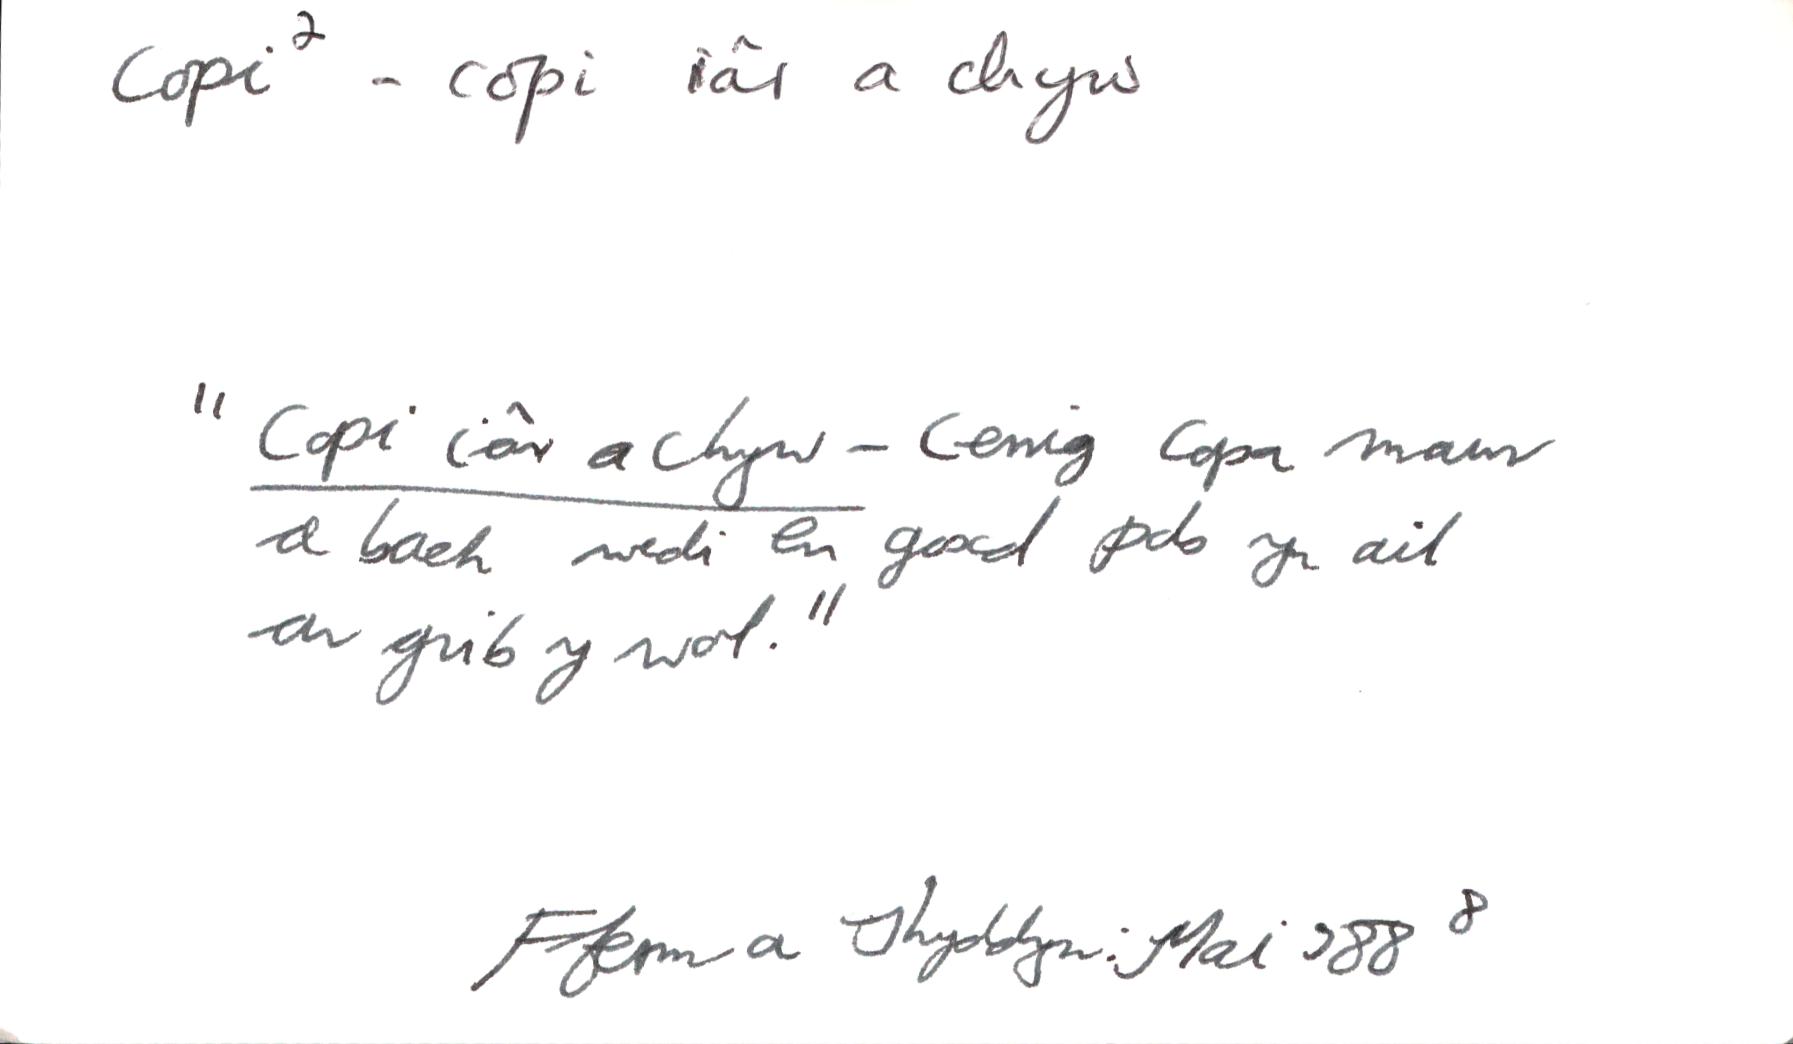 Copi² - copi iâr a chyw
"Copi iâr a chyw - Cerrig Copa mawr
a bach wedi eu gosod pob yn ail
ar grib y wal."
Fferm a Thyddyn: Mai '88 8